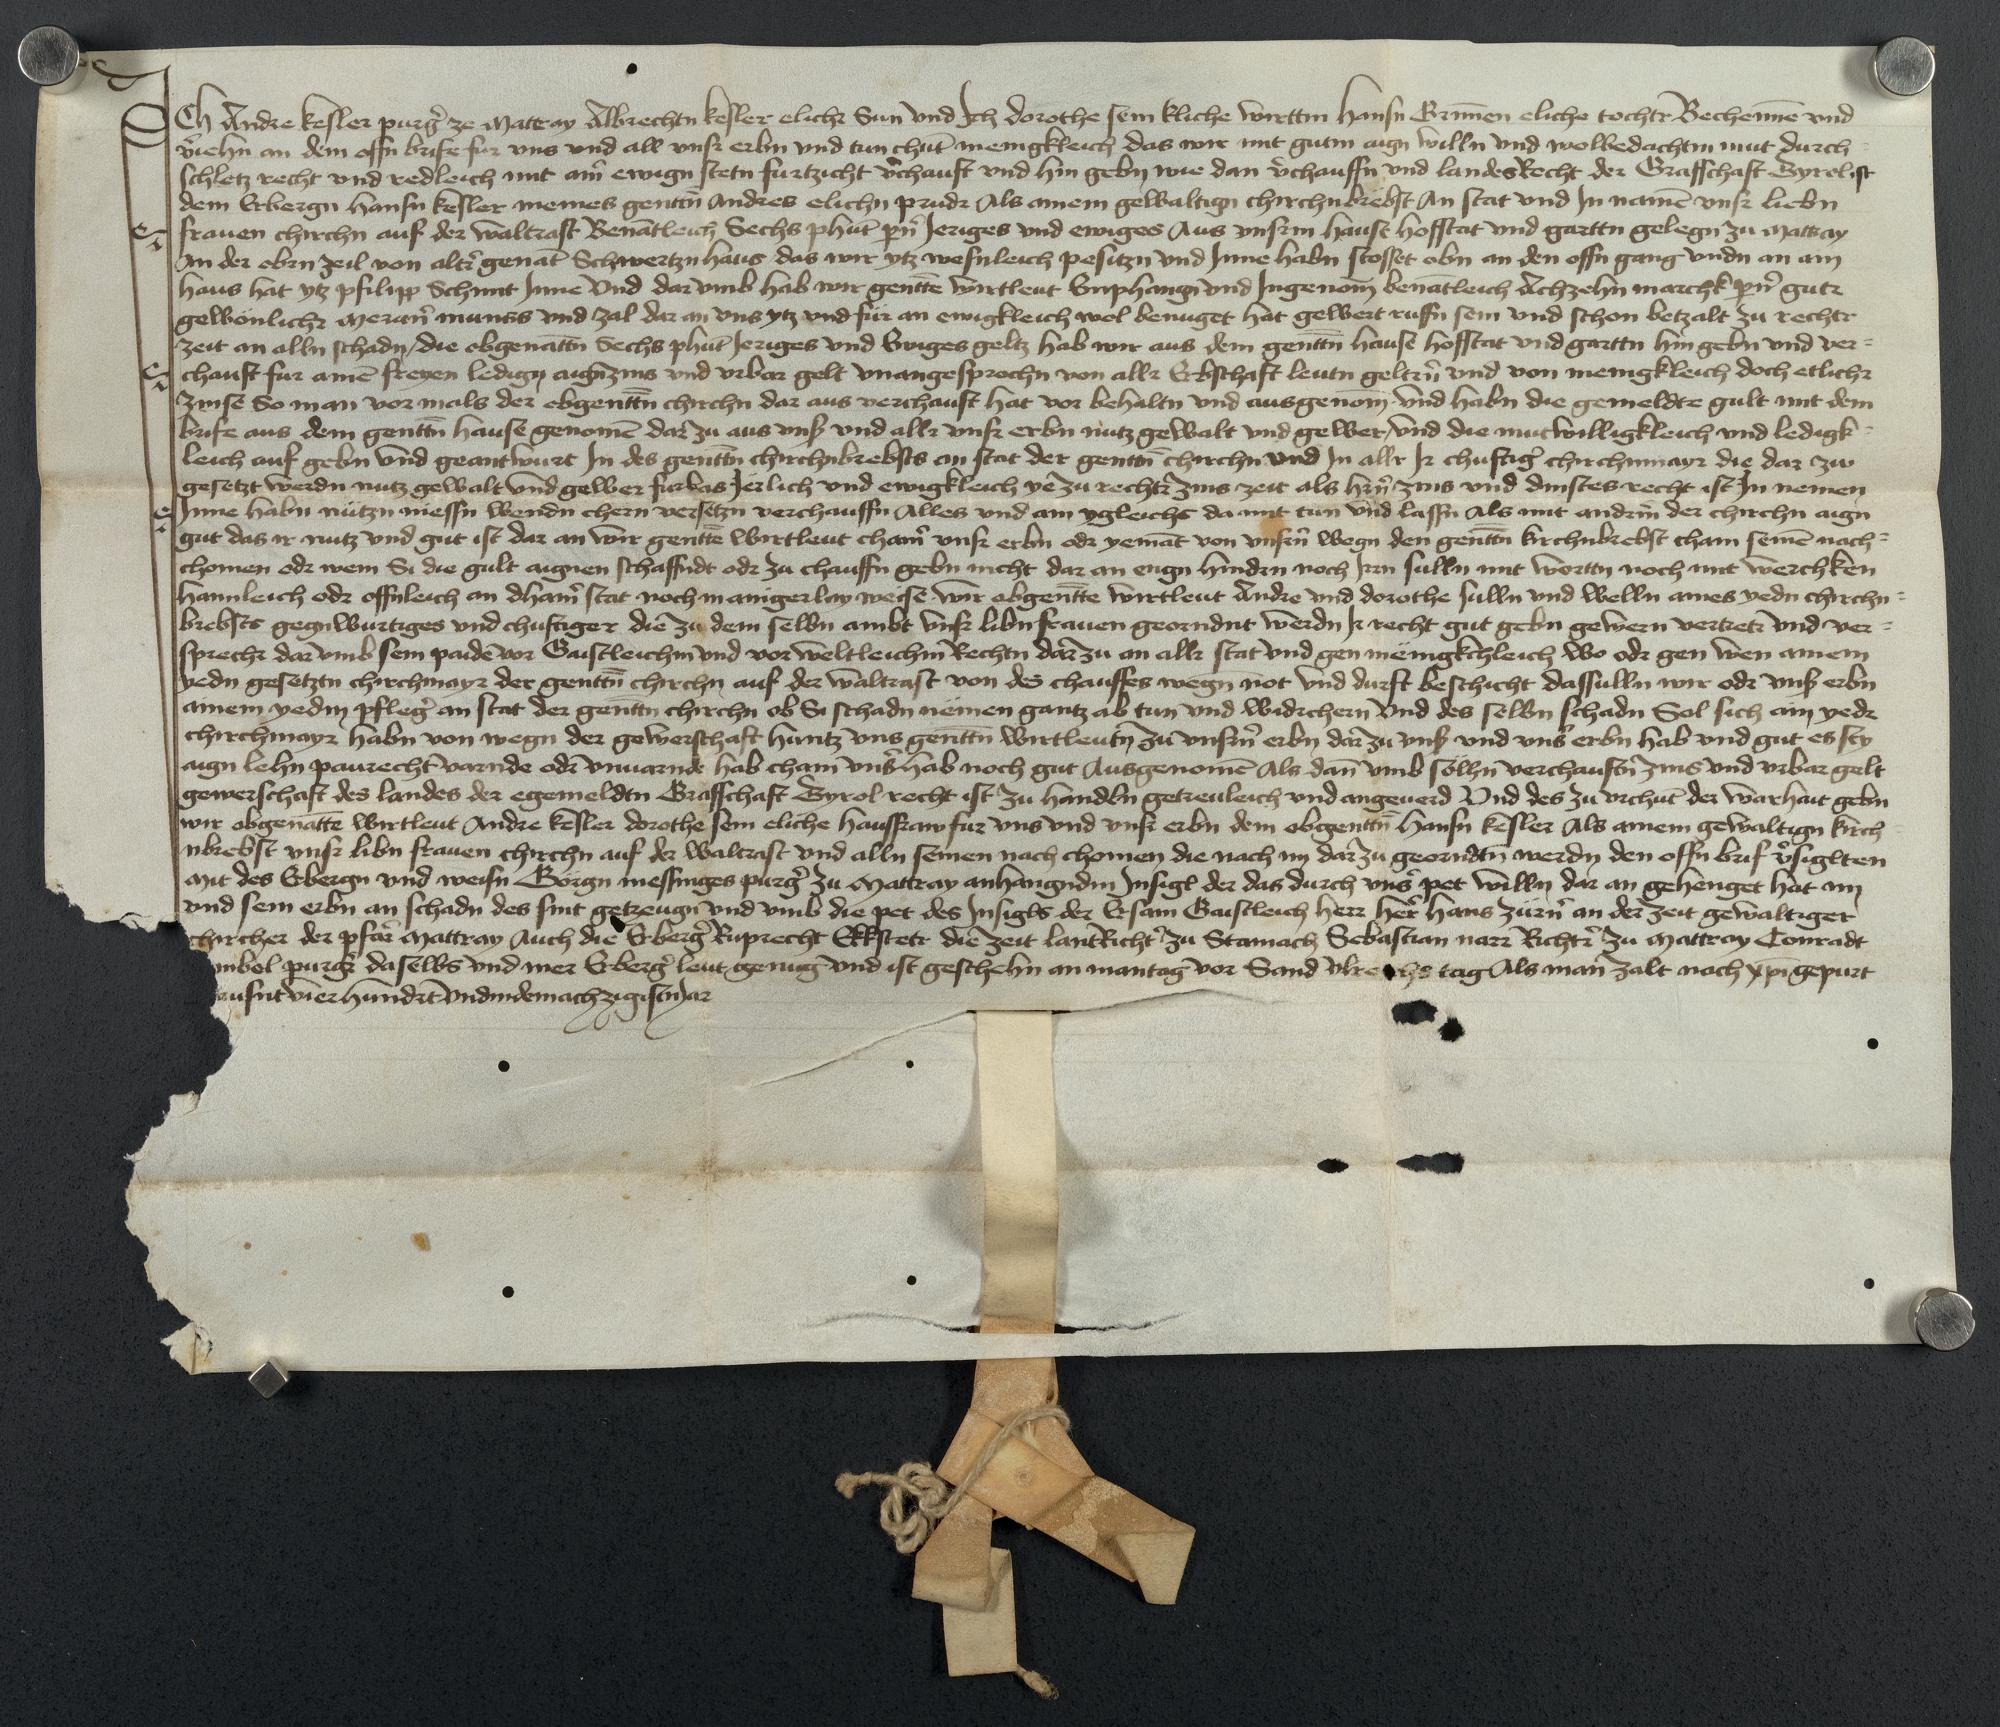 Ich Andre kesler purgr̄ ze Mattray Albrechtn kesler elichr Sun vnd Ich dorothe sein Eliche wirttin Hansn Grimen eliche tochtr Bechennē vnd
v̄iehn an dem offn brife fur vns vnd all vnsr erbn vnd tun chūt menigkleich das wir mit gutm aign willn vnd wolbedachtm mut durch-
schletz recht vnd redleich mit aīr ewign stetn furtzicht v̄chauft vnd hin gebn wie dan v̄chauffn vnd landes Recht der Graffschaft Tyrol ist
dem Erbergn Hansn kesler meines genttn̄ Andres elichn prudr Als ainem gewaltign chirchnbrebst An stat vnd In namē vnsr liebn
frauen chirchn auf der waltrast Benātleich Sechs phūt pn̄r Jeriges vnd ewiges Aus vnserm hause hofstat vnd garttn gelegn zu Mattray
An der obrn zeil von altr̄ genāt Schwertzn haus das wir ytz wesnleich pesitzn vnd Inne habn stosset obn an den offn gang vndn an ain
haus hat ytz pfilipp Schmit Inne Vnd dar vmb hab wir genttē wirtleut Enphangn vnd Ingenom̄ benātleich Achzehn marchk pn̄r gutr
gewonlichr Meran̄r munss vnd zal dar an vns ytz vnd für an ewigkleich wol benuget hat gewert ruffn sein vnd schon betzalt zu rechtr
zeit an alln schadn / die obgenāttn Sechs phūt Jeriges vnd Ewiges geltz hab wir aus dem genttn̄ hause hofstat vnd garttn hin gebn vnd ver-
chauft fur ainē freyen ledign aignzins vnd vrbar gelt vnangesprochn von allr Erbschaft leutn geltrn̄ vnd von menigkleich doch etlichr
zinse So man vor mals der obgenttn̄ chirchn dar aus verchauft hat vor behaltn vnd ausgenom̄ Vnd habn die gemeldte gult mit dem
brife aus dem genttn̄ hause genomē dar zu aus vnsr vnd allr vnsr erbn nutz gewalt vnd gewer / Vnd die mutwilligkleich vnd ledigk-
leich auf gebn vnd geantwurt In des genttn̄ chirchnbrebsts an stat der genttn̄ chirchn vnd In allr Ir chuftigr̄ chirchnmayr die dar zw
gesetzt werdn nutz gewalt vnd gewer furbas Jerlich vnd ewigkleich ye zu rechtr zins zeit als hrn̄ zins vnd dinstes recht ist In nemen
Inne habn nützn niessn wendn chern versetzn verchauffn Alles vnd ain ygleichs da mit tun vnd lassn Als mit andrm der chirchn aign
gut das ir nutz vnd gut ist dar an wir genttē wirtleut chaīr vnsr erbn odr yemāt von vnsrn̄ wegn den genttn̄ kirchnbrebst chain seinē nach-
chomen odr wem Si die gult aignen schaffndt odr zu chauffn gebn nicht dar an engn hindrn noch Irrn sulln mit worttn noch mit werchken
haimleich odr offnleich an dhaīr stat noch in anigerlay weise wir obgenttē wirtleut Andre vnd dorothe sulln vnd welln aines yedn chirchn-
brebsts gegnwurtiges vnd chuftiger die zu dem selbn ambt vnsr libn frauen georndnt werdn Ir recht gut gebn gewern vertretr vnd ver-
sprechr dar vmb sein paidē vor Gaistleichm vnd vor weltleichm Rechtn dar zu an allr stat vnd gen menigkchleich wo odr gen wen ainem
yedn gesetztn chirchmayr der genttn̄ chirchn auf der waltrast von des chauffes wegn not vnd durft beschicht das sulln wir odr vnsr erbn
ainem yedm pflegr̄ an stat der genttn̄ chirchn ob Si schadn nemen gantz ab tun vnd widrchern Vnd des selbn schadn Sol sich ain yedr
chirchmayr habn von wegn der gewerschaft hintz vns genttn̄ wirtleutn zu vnsrn̄ erbn dar zu vnsr vnd vnsr̄ erbn hab vnd gut es sey
aign lehn paurecht varnde odr vnuarnde hab chain vnsr̄ hab noch gut Ausgenomē Als dan̄ vmb sölhn̄ verchauftn̄ zins vnd vrbar gelt
gewerschaft des landes der egemeldtn Graffschaft Tyrol recht ist zu handeln getreuleich vnd angeuerd Vnd des zu vrchūt der warhait gebn
wir obgenāttē wirtleut Andre kesler dorothe sein eliche hausfraw fur vns vnd vnsr erbn dem obgenttn̄ Hansn kesler Als ainem gewaltign kirch
nbrebst vnsr libn frauen chirchn auf der waltrast vnd alln seinen nach chomen die nach im dar zu georndtn̄ werdn den offn brif v̄siglten
Mit des Erbergn vnd weisn Görgn messinges purgr̄ zu Mattray anhangndm Insigl der das durch vnsr̄ pet willn dar an gehenget hat im
vnd sein erbn an schadn des sint getzeugn̄ vnd vmb die pet des Insigls der Ersam Gaistleich herr her̄ hans zürn̄r an der zeit gewaltiger
chircher der pfar̄ Mattray Auch die Erbergr̄ Ruprecht Ekkstetr die zeit lant Richtr̄ zu Stainach Sebastian narr Richtr̄ zu Mattray Conradt
mbel purgr̄ daselbs vnd mer Erbergr̄ leut genug vnd ist geschehn an mantag vor Sand vlreichs tag Als man zalt nach xp̄i gepurt
ausnt vier hundrt vnd in dem achzigistn Jar